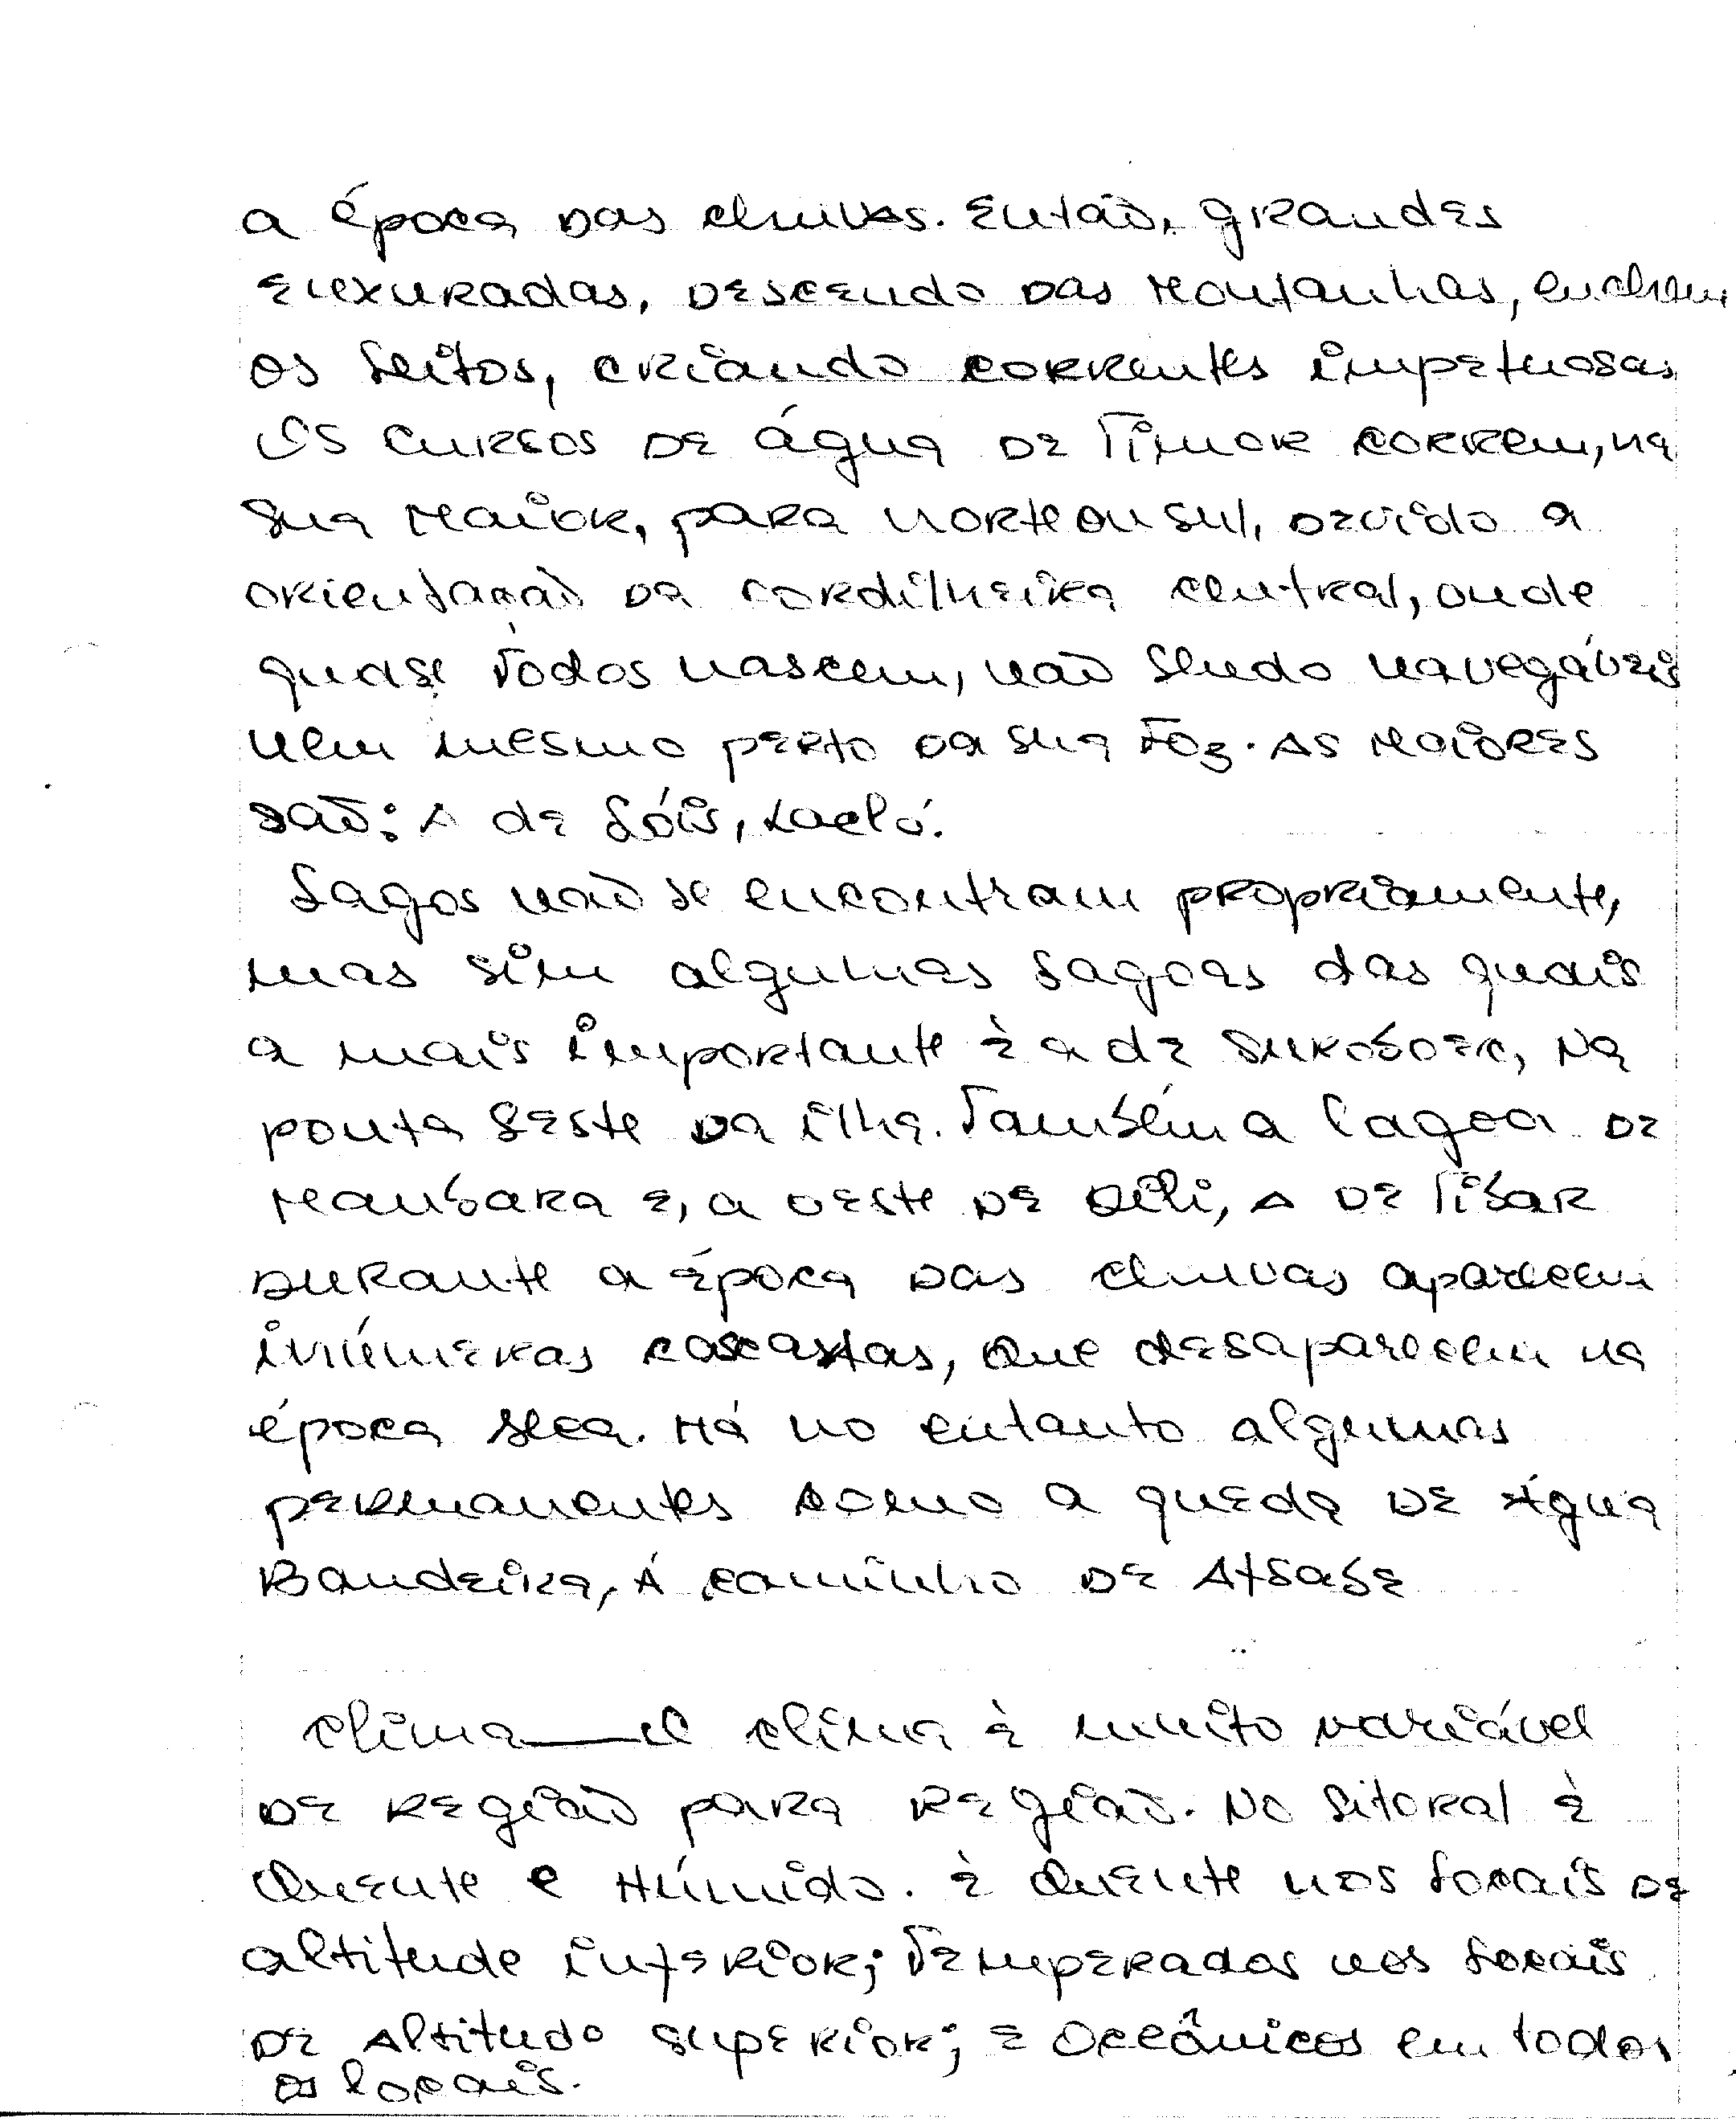 a época das chuvas. Então, grandes
enxuradas, descendo das montanhas, enchem
os leitos, criando correntes impetuosas
Os cursos de água de Timor correm, na
sua maior, para norte ou sul, devido a
orientação da cordilheira central, onde
quase todos nascem, não sendo navegáveis
nem mesmo perto da sua foz. As maiores
são: A de Lóis, Lacló.
Lagos não se encontram propriamente,
mas sim algumas lagoas das quais
a mais importante è a de Suroboec, na
ponta leste da ilha. Também a lagoa de
Maubara e, a oeste de Dili, a de Tibar
Durante a época das chuvas aparecem
inúmeras cascatas, que desaparecem na
época seca. Há no entanto algumas
permanentes como a queda de água
Bandeira, á caminho de Atsabe
Clima — O clima è muito variável
de região para região. No litoral è
quente e húmido. è quente nos locais de
altitude inferior; Temperados nos locais
de altitude superior; e Oceânicos em todos
os locais.